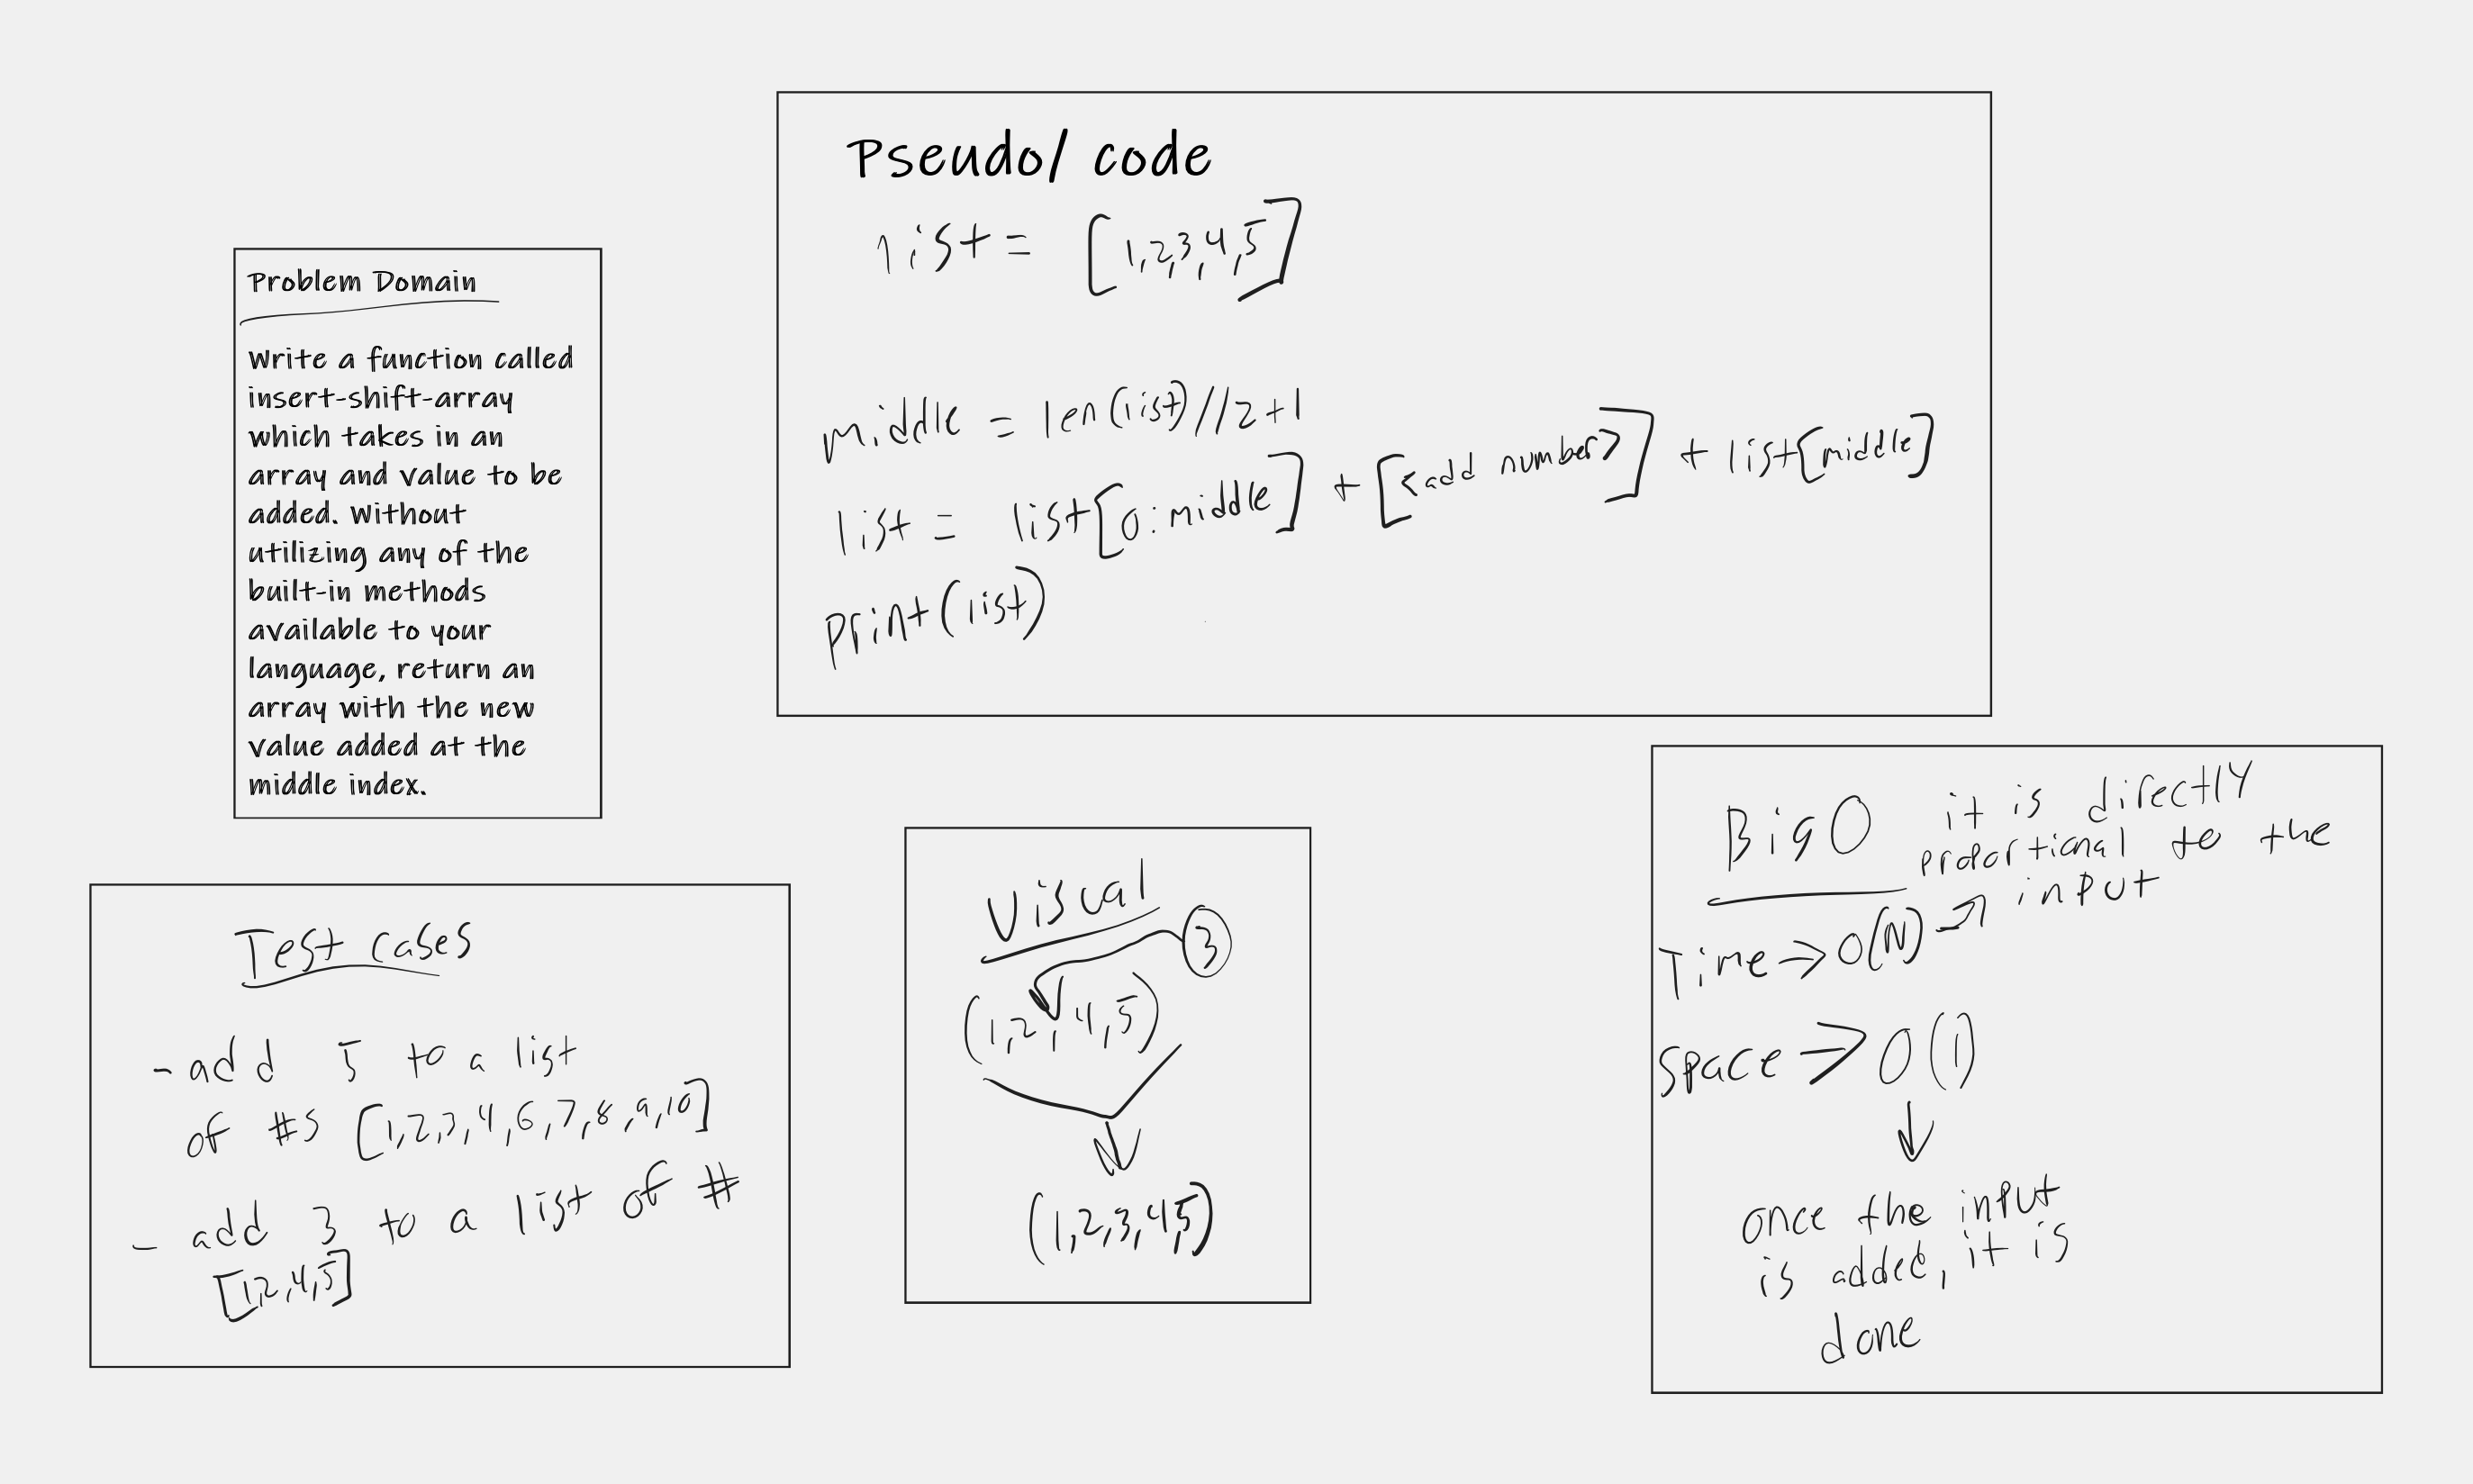 Problem Domain
Write a function called
insert-shift-array
which takes in an
array and value to be
added. Without
utilizing any of the
built-in methods
available to your
language, return an
array with the new
value added at the
middle index.
Pseudo/ code
list = [1,2,3,4,5]
middle = len(list)//2+1
list = list[0:middle] + [<add number>] + list[middle]
print(list)
Test cases
- add 5 to a list
of #s [1,2,3,4,6,7,8,9,10]
- add 3 to a list of #
[1,2,4,5]
Visual
3
(1,2,4,5)
(1,2,3,4,5)
Big O
it is directly
proportional to the
input
Time → O(N) →
Space → O(1)
once the input
is added, it is
done